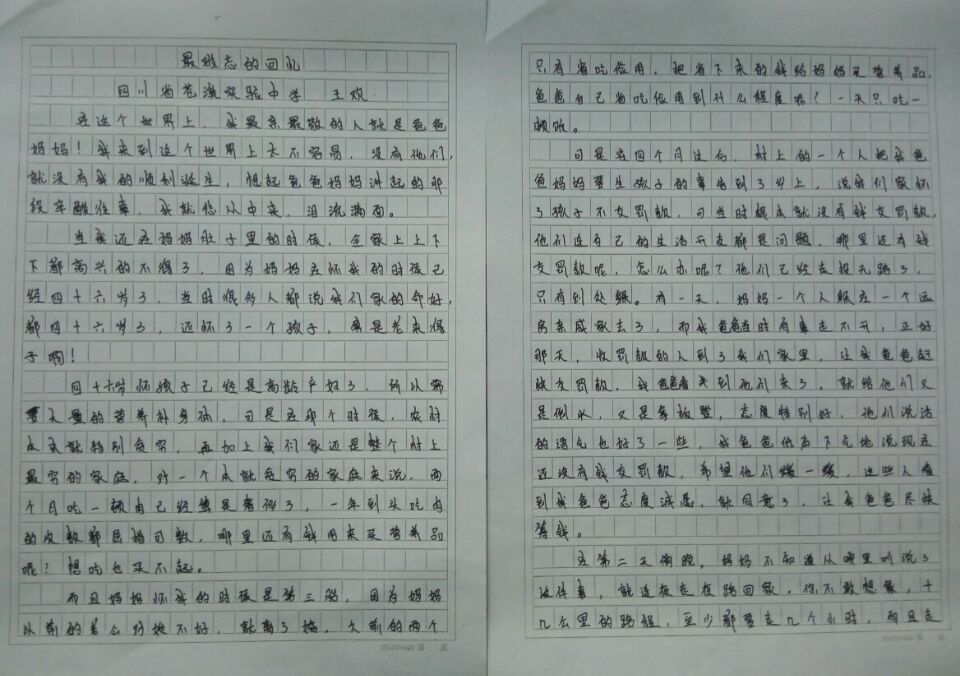 最难忘的回忆
四川省苍溪实验中学 王欢
在这个世界上，我最亲最敬的人就是爸爸
妈妈！我来到这个世界上太不容易，没有他们，
就没有我的顺利诞生，想起爸爸妈妈讲起的那
段辛酸往事，我就悲从中来，泪流满面。
当我还在妈妈肚子里的时候，全家上上下
下都高兴的不得了，因为妈妈在怀我的时候已
经四十六岁了，当时很多人都说我们家的命好，
都四十六岁了，还怀了一个孩子，真是老来得
子啊！
四十六岁怀孩子已经是高龄产妇了，所以需
要大量的营养补身体，可是在那个时候，农村
本来就特别贫穷，再加上我们家还是整个村上
最穷的家庭，对一个本就贫穷的家庭来说，两
个月吃一顿肉已经算是奢侈了，一年到头吃肉
的次数都屈指可数，哪里还有钱用来买营养品
呢？想吃也买不起。
而且妈妈怀我的时候是第三胎，因为妈妈
以前的老公对她不好，就离了婚，久前的两个
只有省吃俭用，把省下来的钱给妈妈买营养品，
爸爸自己省吃俭用到什么程度呢？一天只吃一
顿饭。
可是在四个月过后，村上的一个人把我爸
爸妈妈要生孩子的事告到了乡上，说我们家怀
了孩子不交罚款，可当时根本就没有钱交罚款，
他们连自己的生活开支都是问题，哪里还有钱
交罚款呢，怎么办呢？他们已经走投无路了，
只有到处躲。有一天，妈妈一个人躲在一个远
房亲戚家去了，而我爸爸当时有事走不开，正好
那天，收罚款的人到了我们家里，让我爸爸赶
快交罚款，我爸爸看到他们来了，就给他们又
是倒水，又是拿板凳，态度特别好，他们说话
的语气也好了一些，我爸爸低声下气地说现在
还没有钱交罚款，希望他们缓一缓，这些人看
到我爸爸态度诚恳，就同意了，让我爸爸尽快
筹钱。
在第二天傍晚，妈妈不知道从哪里听说了
这件事，就连夜走在路回家，你不敢想象，十
几公里的路程，至少都要走几个小时，而且走